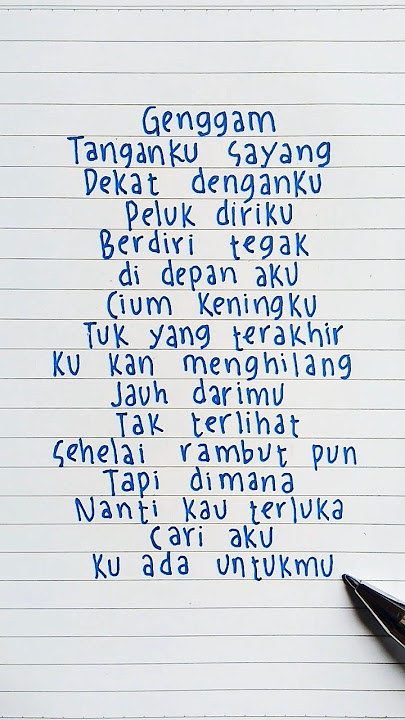 Genggam
Tanganku sayang
Dekat denganku
Peluk diriku
Berdiri tegak
di depan aku
Cium Keningku
Tuk yang terakhir
Ku kan menghilang
Jauh darimu
Tak terlihat
Sehelai rambut pun
Tapi dimana
Nanti kau terluka
Cari aku
Ku ada untukmu